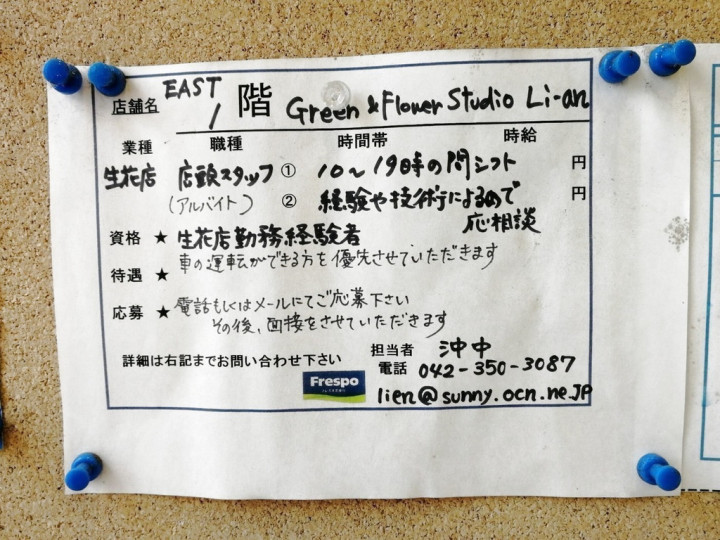 店舗名 EAST 1 階 Green & Flower Studio Li-an
業種 職種 時間帯 時給
生花店 店頭スタッフ ① 10〜19時の間シフト 円
(アルバイト) ② 経験や技術によるので 円
応相談
資格 ★ 生花店勤務経験者
車の運転ができる方を優先させていただきます
待遇 ★
応募 ★ 電話もしくはメールにてご応募下さい
その後、面接をさせていただきます
詳細は右記までお問い合わせ下さい
担当者 沖中
電話 042-350-3087
Frespo
lien@sunny.ocn.ne.jp